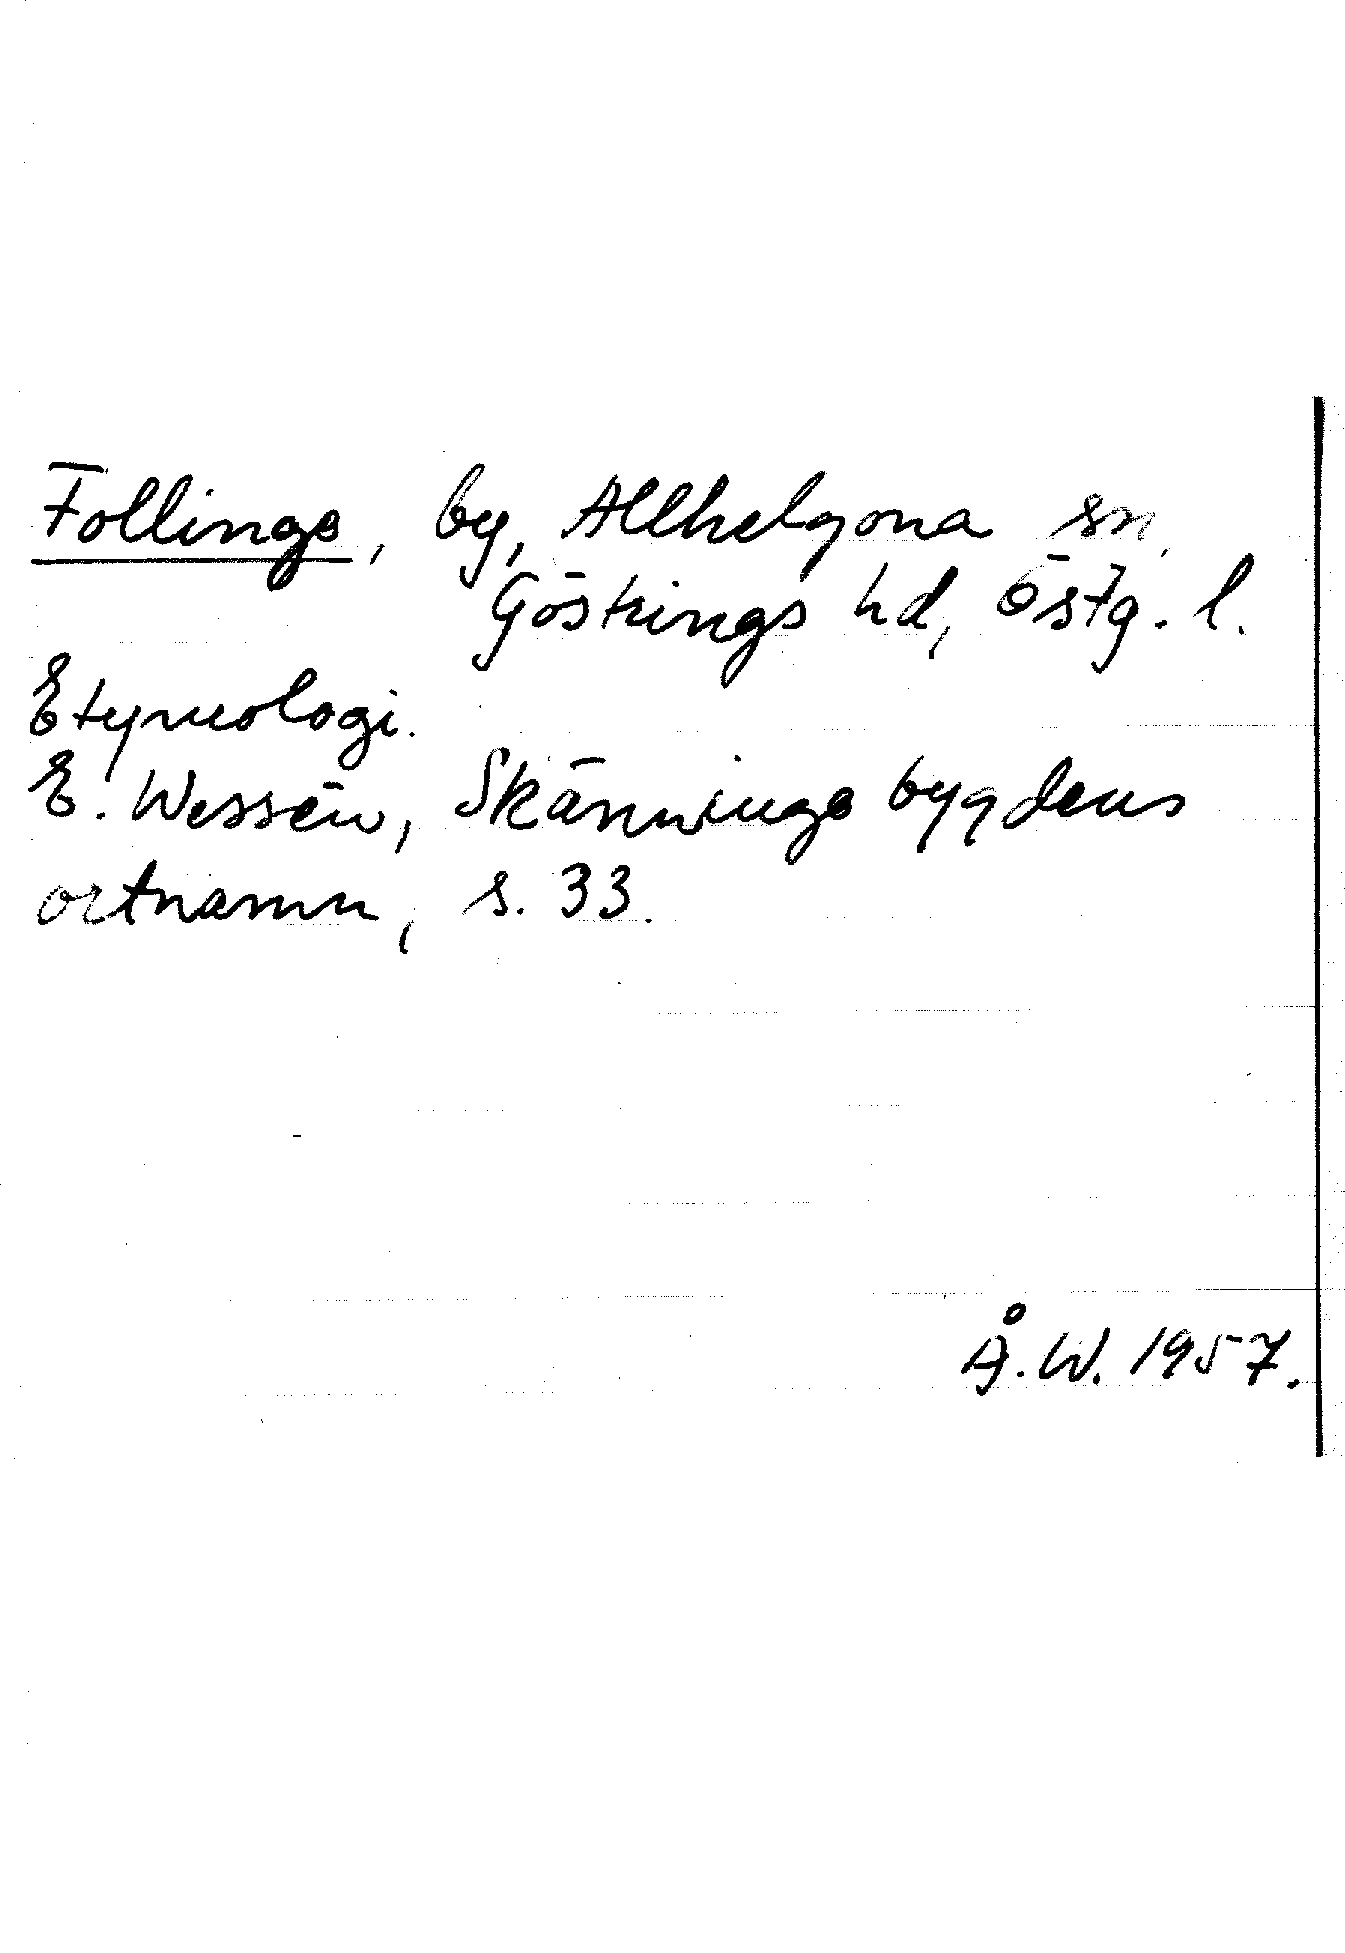 Follinge, by, Allhelgona sn,
Göstrings hd, Östg. l.
Etymologi.
E. Wessén, Skänninge bygdens
ortnamn, s. 33.
Å. W. 1957.